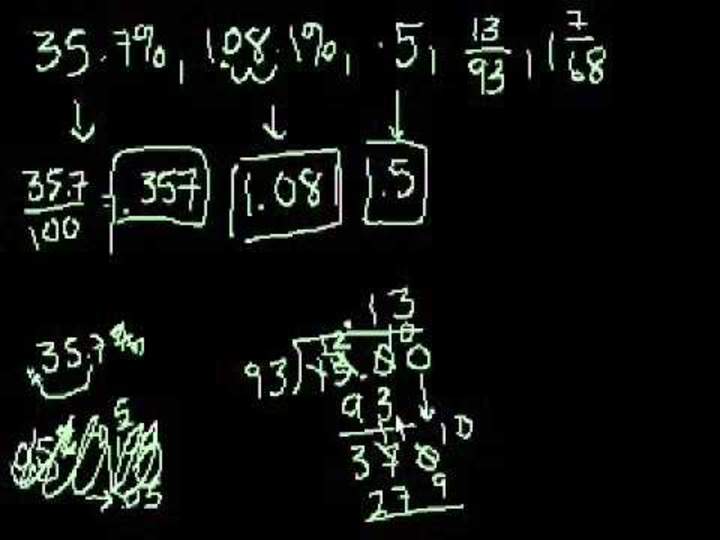 35.7%, 108.1%, .5, 13/93, 1 7/68
35.7/100 = .357 1.08 1.5
.13
35.7
93)13.00
93
370
279
5
.05